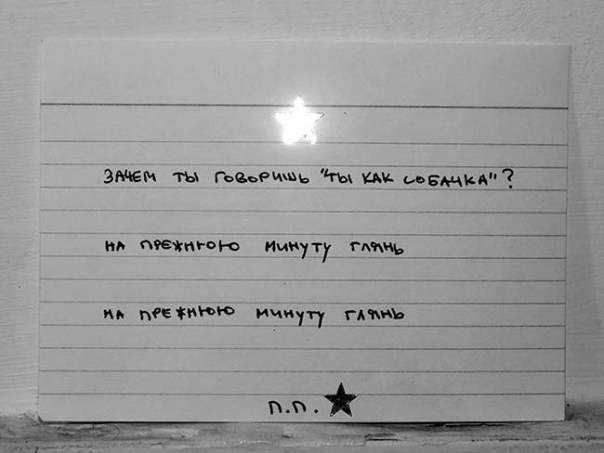 ЗАЧЕМ ТЫ ГОВОРИШЬ "ТЫ КАК СОБАЧКА"?
НА ПРЕЖНЮЮ МИНУТУ ГЛЯНЬ
НА ПРЕЖНЮЮ МИНУТУ ГЛЯНЬ
П.П.